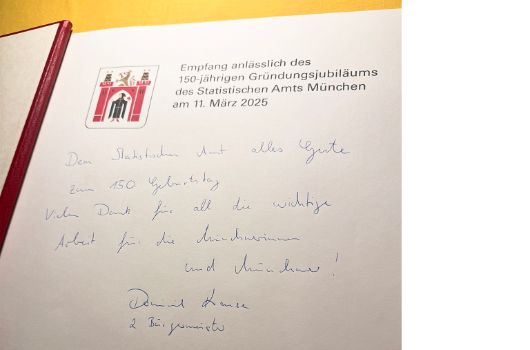 Empfang anlässlich des
150-jährigen Gründungsjubiläums
des Statistischen Amts München
am 11. März 2025
Dem Statistischen Amt alles Gute
zum 150. Geburtstag
Vielen Dank für all die wichtige
Arbeit für die Münchnerinnen
und Münchner!
Dominik Krause
2. Bürgermeister